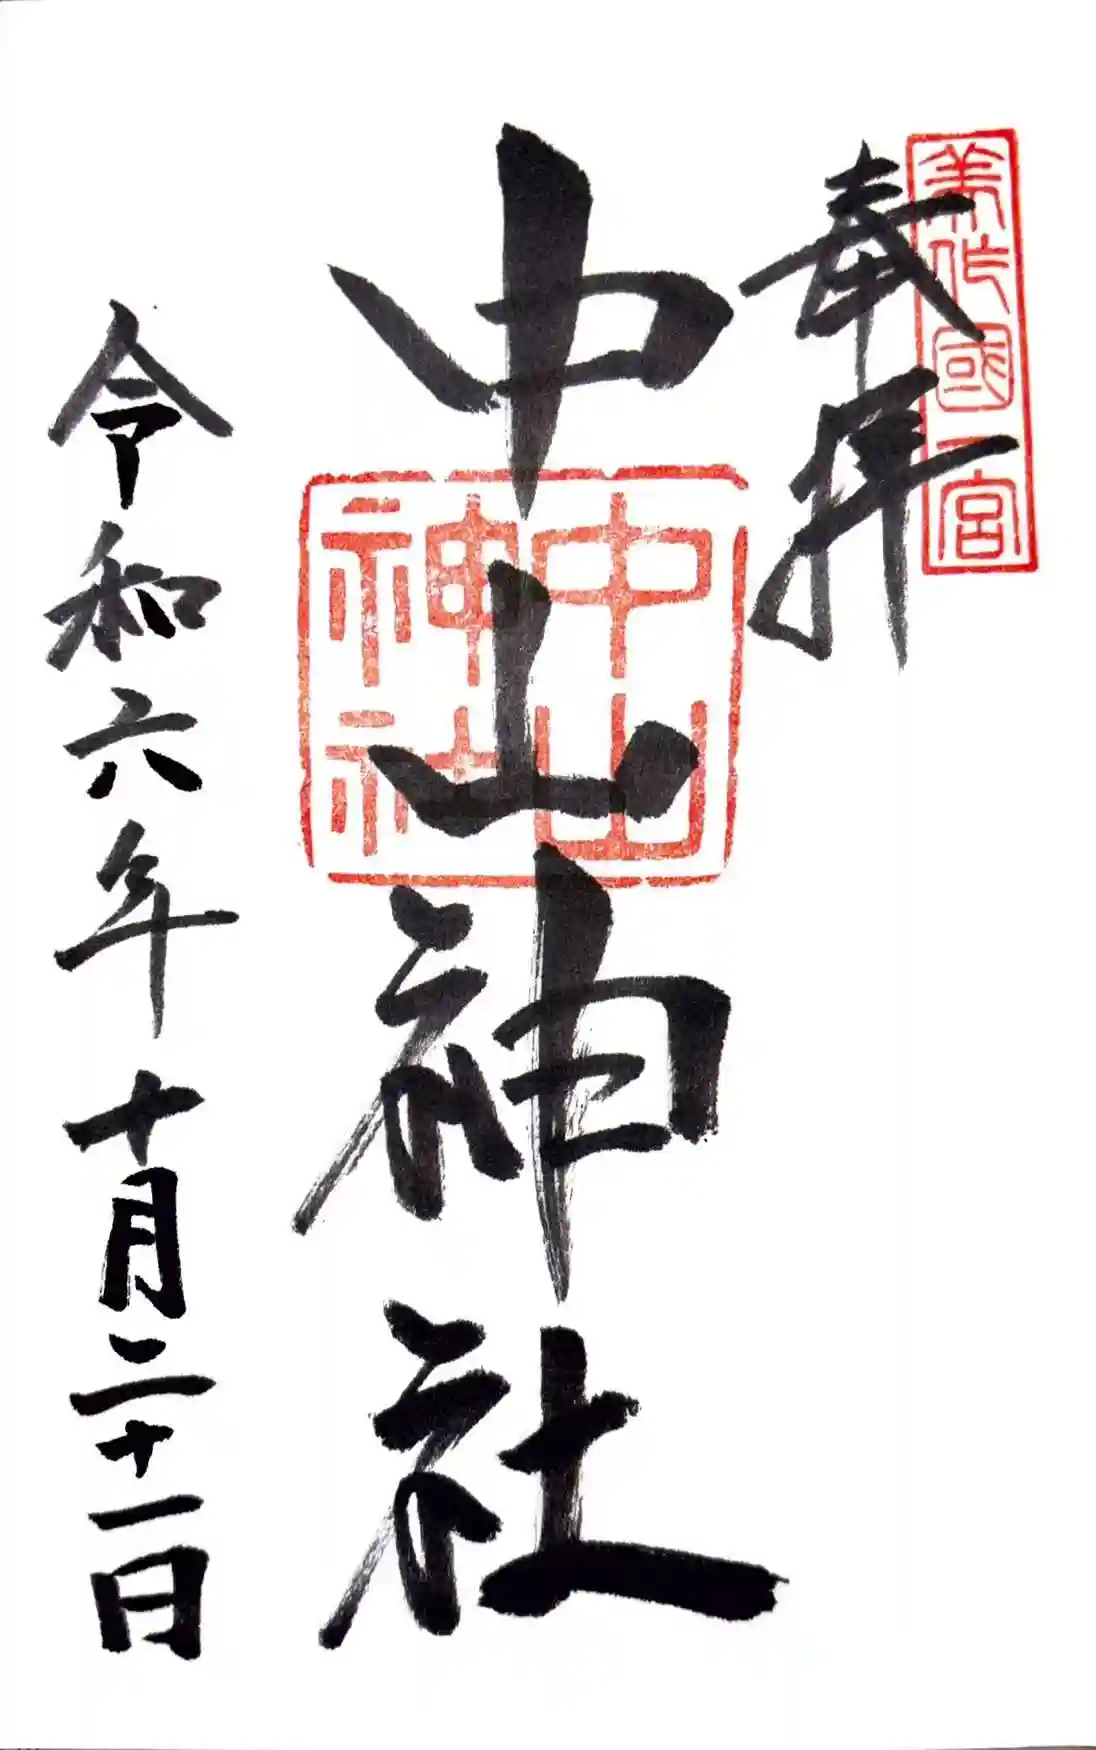 奉拝
美作國一宮
中山神社
中山
神社
令和六年十月二十一日